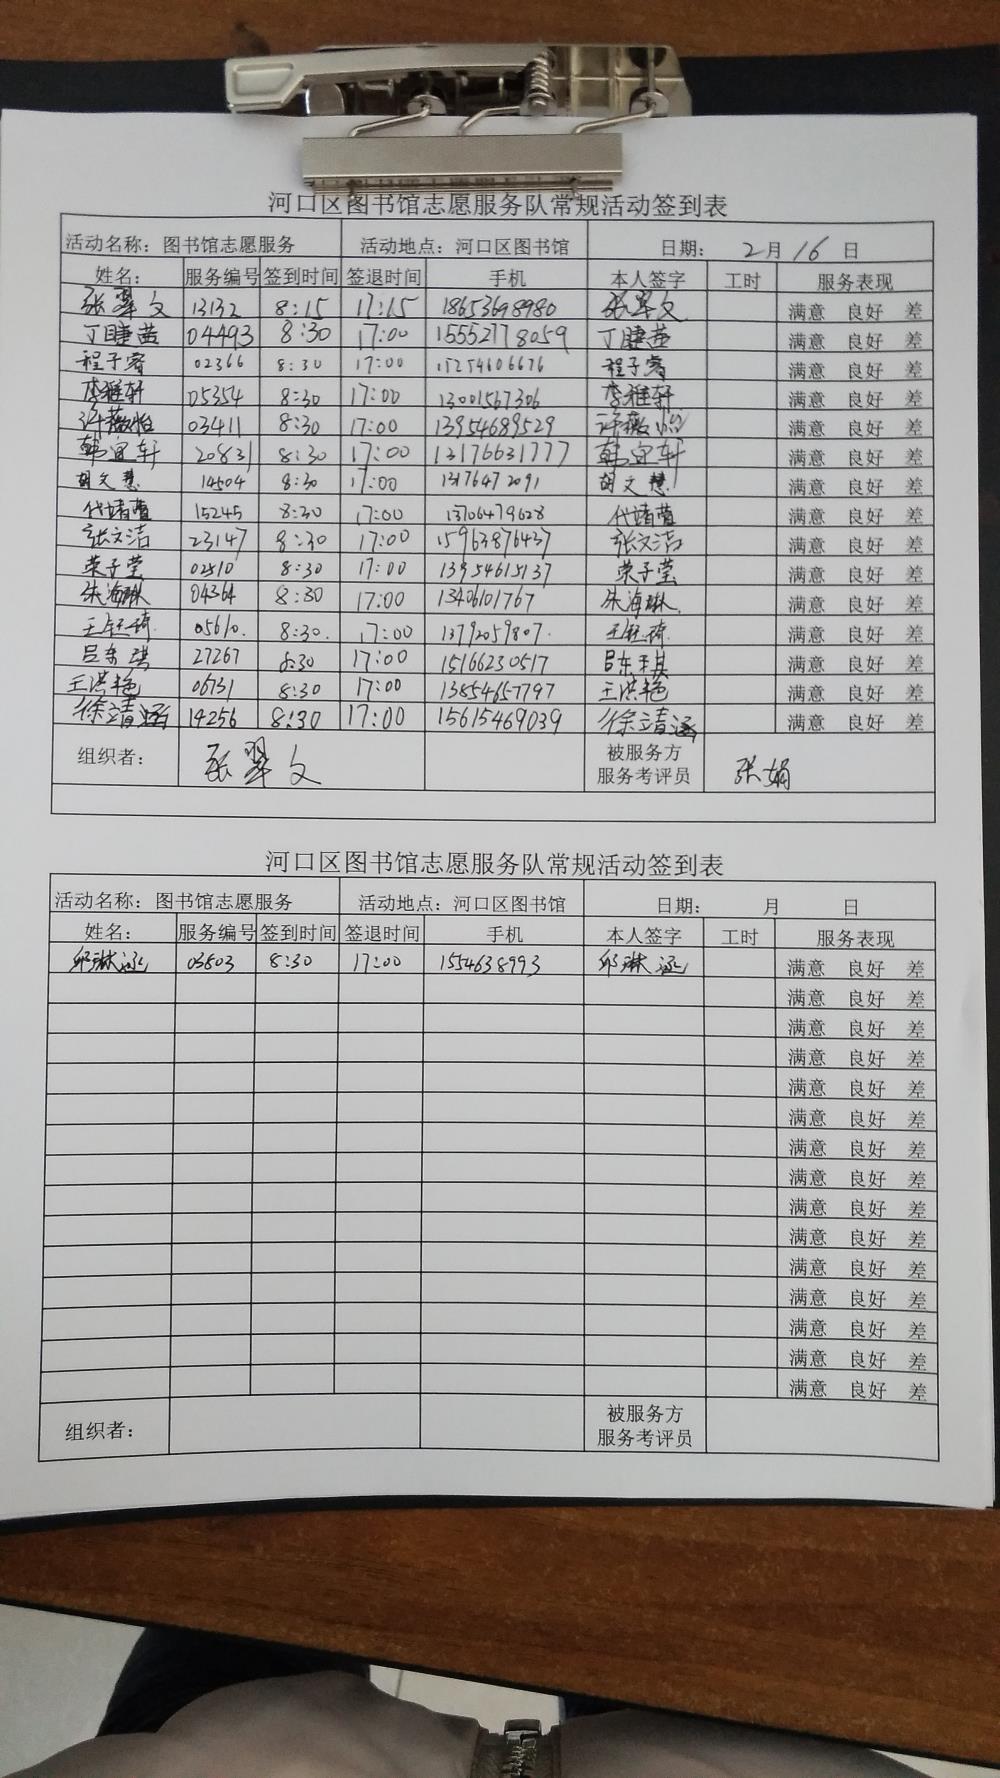 河口区图书馆志愿服务队常规活动签到表
活动名称：图书馆志愿服务 活动地点：河口区图书馆 日期： 2月16日
姓名： 服务编号 签到时间 签退时间 手机 本人签字 工时 服务表现
张翠文 13132 8:15 17:15 18653698980 张翠文 满意 良好 差
丁睫茜 04493 8:30 17:00 15552778059 丁睫茜 满意 良好 差
程子睿 02366 8:30 17:00 15254606676 程子睿 满意 良好 差
李雅轩 05354 8:30 17:00 13001567306 李雅轩 满意 良好 差
许薇怡 03411 8:30 17:00 13954689529 许薇怡 满意 良好 差
韩宜轩 20831 8:30 17:00 13176631777 韩宜轩 满意 良好 差
胡文慧 14504 8:30 17:00 13176472091 胡文慧 满意 良好 差
15245 8:30 17:00 13706479628 满意 良好 差
张文洁 23147 8:30 17:00 15963876437 张文洁 满意 良好 差
荣子莹 02510 8:30 17:00 13954615137 荣子莹 满意 良好 差
朱海琳 04364 8:30 17:00 13406101767 朱海琳 满意 良好 差
王钰琦 05610. 8:30. 17:00 13792059807. 王钰琦 满意 良好 差
吕东琪 27267 8:30 17:00 15166230517 吕东琪 满意 良好 差
王洪艳 06731 8:30 17:00 13854657797 王洪艳 满意 良好 差
徐靖涵 14256 8:30 17:00 15615469039 徐靖涵 满意 良好 差
组织者： 张翠文 被服务方 服务考评员 张娟
河口区图书馆志愿服务队常规活动签到表
活动名称：图书馆志愿服务 活动地点：河口区图书馆 日期： 月 日
姓名： 服务编号 签到时间 签退时间 手机 本人签字 工时 服务表现
邱琳涵 03803 8:30 17:00 1554638993 邱琳涵 满意 良好 差
满意 良好 差
满意 良好 差
满意 良好 差
满意 良好 差
满意 良好 差
满意 良好 差
满意 良好 差
满意 良好 差
满意 良好 差
满意 良好 差
满意 良好 差
满意 良好 差
满意 良好 差
满意 良好 差
组织者： 被服务方 服务考评员